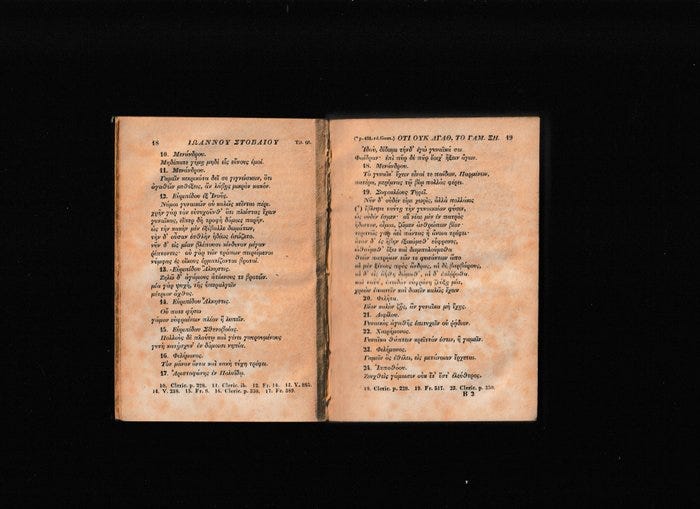 18 ΙΩΑΝΝΟΥ ΣΤΟΒΑΙΟΥ Τιτ. 68.
10. Μενάνδρου.
Μηδέποτε γήμῃ μηδὲ εἷς εὔνους ἐμοί.
11. Μενάνδρου.
Γαμεῖν κεκρικότα δεῖ σε γιγνώσκειν, ὅτι
ἀγαθὸν μέγ' ἕξεις, ἂν λάβῃς μικρὸν κακόν.
12. Εὐριπίδου ἐξ Ἰνοῦς.
Νόμοι γυναικῶν οὐ καλῶς κεῖνται πέρι·
χρῆν γὰρ τὸν εὐτυχοῦνθ' ὅτι πλείστας ἔχειν
γυναῖκας, εἴπερ δὴ τροφὴ δόμοις παρῆν.
ὡς τὴν κακὴν μὲν ἐξέβαλλε δωμάτων,
τὴν δ' οὖσαν ἐσθλὴν ἡδέως ἐσώζετο.
νῦν δ' εἰς μίαν βλέπουσι κίνδυνον μέγαν
ῥίπτοντες· οὐ γὰρ τῶν τρόπων πειρώμενοι
νύμφας ἐς οἴκους ἑρματίζονται βροτοί.
13. Εὐριπίδου Ἀλκηστις.
Ζηλῶ δ' ἀγάμους ἀτέκνους τε βροτῶν.
μία γὰρ ψυχή, τῆς ὑπεραλγεῖν
μέτριον ἄχθος.
14. Εὐριπίδου Ἀλκηστις.
Οὔ ποτε φήσω
γάμον εὐφραίνειν πλέον ἢ λυπεῖν.
15. Εὐριπίδου Σθενοβοίας.
Πολλοὺς δὲ πλούτῳ καὶ γένει γαυρουμένους
γυνὴ κατῄσχυν' ἐν δόμοισι νηπία.
16. Φιλήμονος.
17. Ἀριστοφάνης ἐν Πολυΐδῳ.
10. Cleric. p. 228. 11. Cleric. ib. 12. Fr. 14. 13. V. 285.
14. V. 238. 15. Fr. 8. 16. Cleric. p. 350. 17. Fr. 589.
(*p. 431. ed. Gesn.) ΟΤΙ ΟΥΚ ΑΓΑΘ. ΤΟ ΓΑΜ. ΞΗ. 19
Ἰδού, δίδωμι τήνδ' ἐγὼ γυναῖκά σοι
Φαίδραν· ἐπὶ πῦρ δὲ πῦρ ἔοιχ' ἥκειν ἄγων.
18. Μενάνδρου.
Τὸ γυναῖκ' ἔχειν εἶναί τε παίδων, Παρμένων,
πατέρα, μερίμνας τῷ βίῳ πολλὰς φέρει.
19. Σοφοκλέους Τηρεῖ.
Νῦν δ' οὐδέν εἰμι χωρίς, ἀλλὰ πολλάκις
(*) ἔβλεψα ταύτῃ τὴν γυναικείαν φύσιν,
ὡς οὐδέν ἐσμεν· αἳ νέαι μὲν ἐν πατρὸς
ἥδιστον, οἶμαι, ζῶμεν ἀνθρώπων βίον·
τερπνῶς γὰρ ἀεὶ πάντας ἡ ἄνοια τρέφει·
ὅταν δ' ἐς ἥβην ἐξικώμεθ' εὔφρονες,
ὠθούμεθ' ἔξω καὶ διεμπολούμεθα
θεῶν πατρῴων τῶν τε φυσάντων ἄπο
αἱ μὲν ξένους πρὸς ἄνδρας, αἱ δὲ βαρβάρους,
χρεὼν ἐπαινεῖν καὶ δοκεῖν καλῶς ἔχειν
20. Φιλήτα.
Βίον καλὸν ζῇς, ἂν γυναῖκα μὴ ἔχῃς.
21. Διφίλου.
Γυναικὸς ἀγαθῆς ἐπιτυχεῖν οὐ ῥᾴδιον.
22. Χαιρήμονος.
Γυναῖκα θάπτειν κρεῖττόν ἐστιν, ἢ γαμεῖν.
23. Φιλήμονος.
Γαμεῖν ὃς ἐθέλει, εἰς μετάνοιαν ἔρχεται.
24. Ἱπποθόου.
Ζευχθεὶς γάμοισιν οὐκ ἔτ' ἔστ' ἐλεύθερος.
18. Cleric. p. 228. 19. Fr. 517. 23. Cleric. p. 350.
B 2